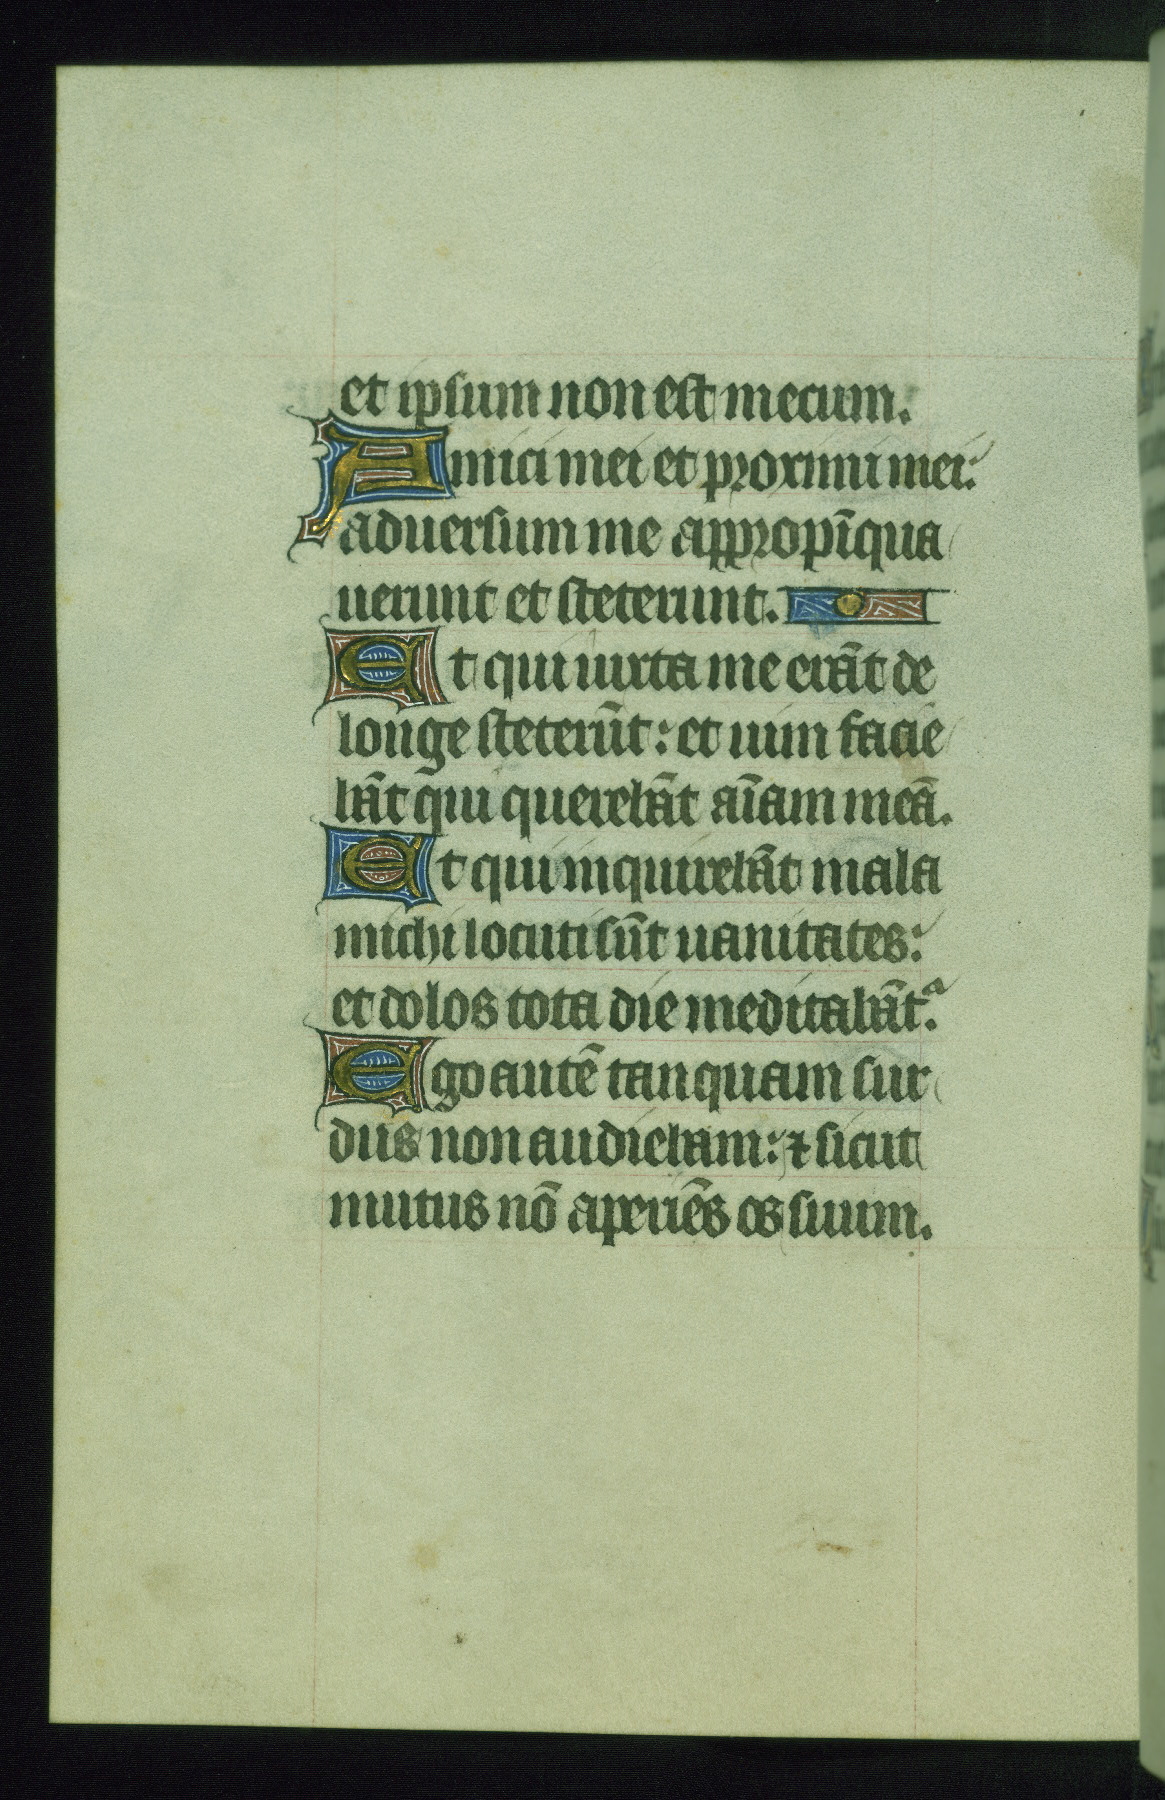 et ipsum non est mecum.
Amici mei et proximi mei:
aduersum me appropīqua
uerunt et steterunt.
Et qui iuxta me erāt de
longe steterūt: et uim facie
bāt qui querebāt aīam meā.
Et qui inquirebāt mala
michi locuti sūt uanitates:
et dolos tota die meditabāt᷑.
Ego autē tanquam sur
dus non audiebam: ⁊ sicut
mutus nō aperiēs os suum.